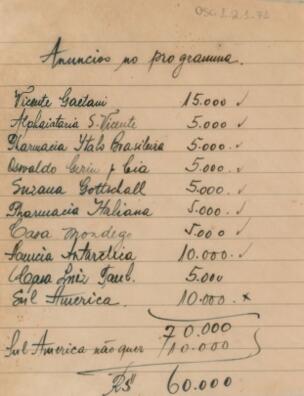 OSG 1.2.1.71
Anuncios no programma.
Vicente Gaetani 15.000 ✓
Alphaiataria S. Vicente 5.000 ✓
Pharmacia Italo Brasileira 5.000 ✓
Oswaldo & Cia 5.000 ✓
Suzana Gottschall 5.000 ✓
Pharmacia Italiana 5.000 ✓
Casa Mondego 5.000 ✓
Antarctica 10.000 ✓
Casa Luiz 5.000
Sul America. 10.000. x
70.000
Sul America não quer 10.000
RS 60.000